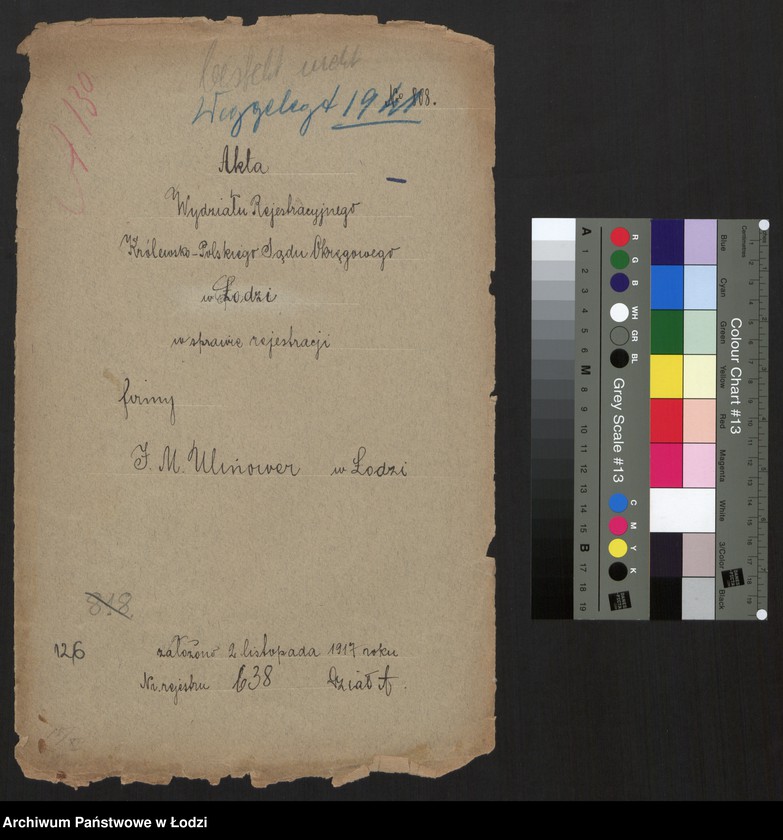 No 808.
Akta
Wydziału Rejestracyjnego
Królewsko-Polskiego Sądu Okręgowego
w Łodzi
w sprawie rejestracji
firmy
J. M. Ulinower w Łodzi
818
126
założono 2 listopada 1917 roku
Nr. rejestru 638 Dział A.
A
1
2
3
4
5
6
M
8
9
10
11
12
13
14
15
B
17
18
19
R
G
B
WH
GR
BL
Grey Scale #13
C
M
Y
K
Blue
Cyan
Green
Yellow
Red
Magenta
White
3/Color
Black
Colour Chart #13
Centimetres
Archiwum Państwowe w Łodzi